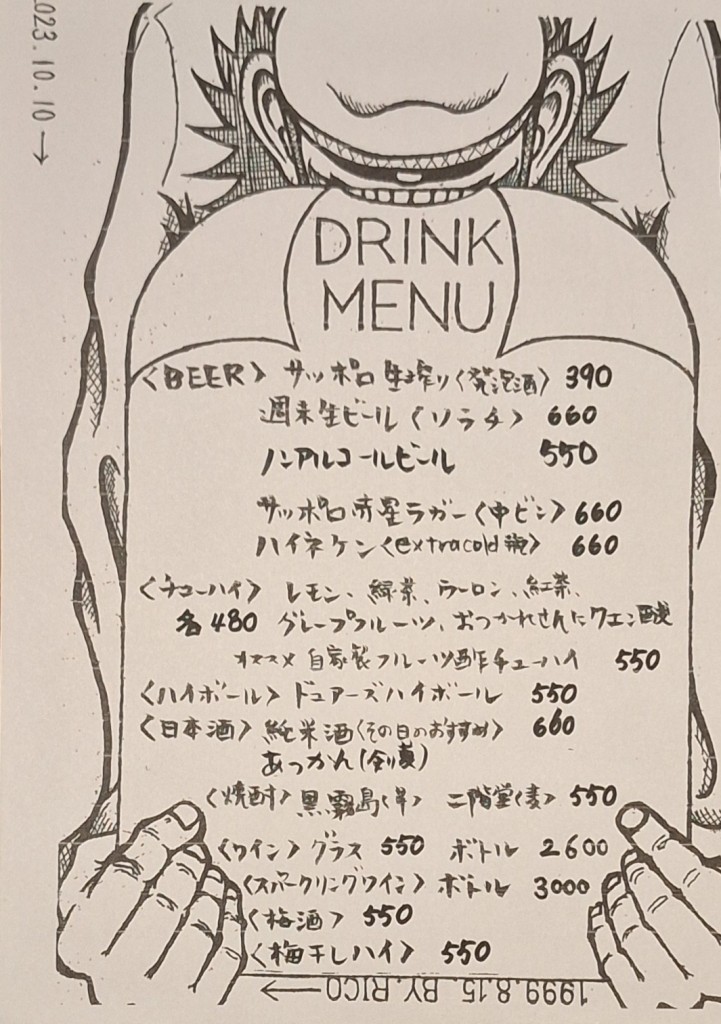 023.10.10 →
DRINK
MENU
〈BEER〉 サッポロ 生搾り〈発泡酒〉 390
週末生ビール〈ソラチ〉 660
ノンアルコールビール 550
サッポロ赤星ラガー〈中ビン〉 660
ハイネケン〈extracold 瓶〉 660
〈チューハイ〉 レモン、緑茶、ウーロン、紅茶、
各480 グレープフルーツ、おつかれさんにクエン酸
オススメ 自家製フルーツ酢チューハイ 550
〈ハイボール〉 ドュアーズハイボール 550
〈日本酒〉 純米酒〈その日のおすすめ〉 660
あつかん
〈焼酎〉 黒霧島〈芋〉 二階堂〈麦〉 550
〈ワイン〉 グラス 550 ボトル 2600
〈スパークリングワイン〉 ボトル 3000
〈梅酒〉 550
〈梅干しハイ〉 550
1999.8.15. BY.RICO →